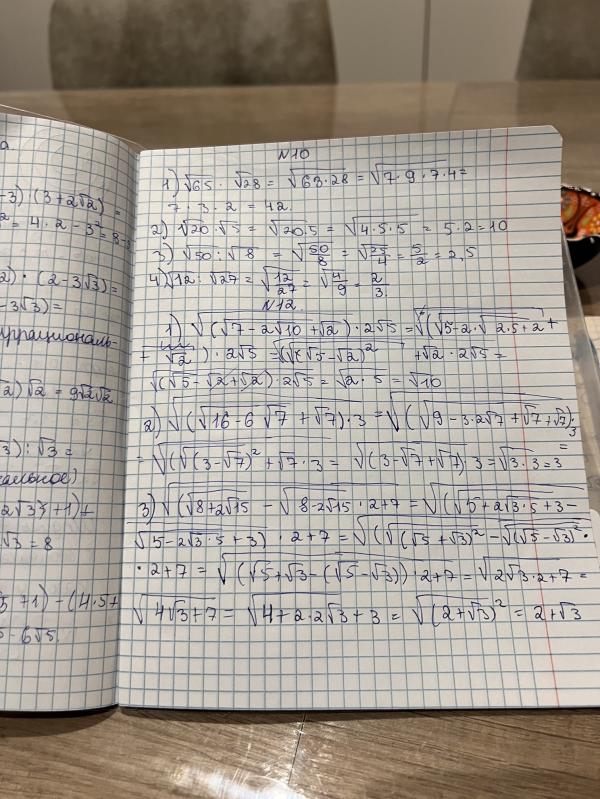 а
-3) · (3+2√2) =
² = 4 · 2 - 3² = 8 -
2) · (2-3√3) =
-3√3) =
иррациональ-
√2) √2 = 9√2√2
3) : √3 =
кальное)
2√3 + 1) +
√3 = 8
+1) - (4·5+
- 6√5.
N10
1) √65 · √28 = √63·28 = √7·9·7·4 =
7 · 3 · 2 = 42.
2) √20 · √5 = √20·5 = √4·5·5 = 5·2=10
3) √50 : √8 = √50/8 = √25/4 = 5/2 = 2,5
4) √12 : √27 = √12/27 = √4/9 = 2/3.
N12.
1) √(√7-2√10 + √2) · 2√5 = √(√5-2·√2·5+2 +
+ √2) · 2√5 = √(√(√5-√2)² + √2 · 2√5 =
√(√5 - √2+√2) · 2√5 = √2·5 = √10
2) √(√16-6√7 + √7)·3 = √(√9-3·2√7+√7+√7)·3
= √(√(3-√7)² + √7·3 = √(3-√7+√7) 3 = √3·3 = 3 =
3) √(√8+2√15 - √8-2√15 · 2+7 = √(√5+2√3·5+3 -
√5-2√3·5+3) · 2+7 = √(√(√5+√3)² - √(√5-√3)² ·
· 2+7 = √(√5+√3-(√5-√3)) · 2+7 = √2√3·2+7 =
√4√3+7 = √4+2·2√3+3 = √(2+√3)² = 2+√3